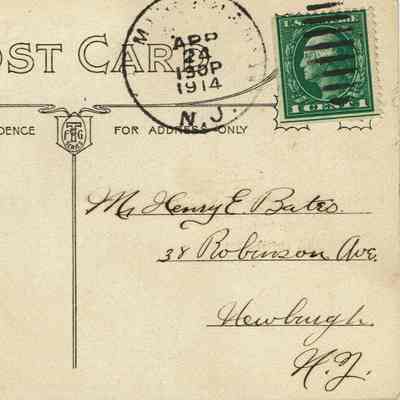 OST CARD
APR
24
130P
1914
N.J.
U.S. POSTAGE
1 CENT 1
DENCE
FOR ADDRESS ONLY
Mr Henry E. Bates.
38 Robinson Ave.
Newburgh.
N.Y.